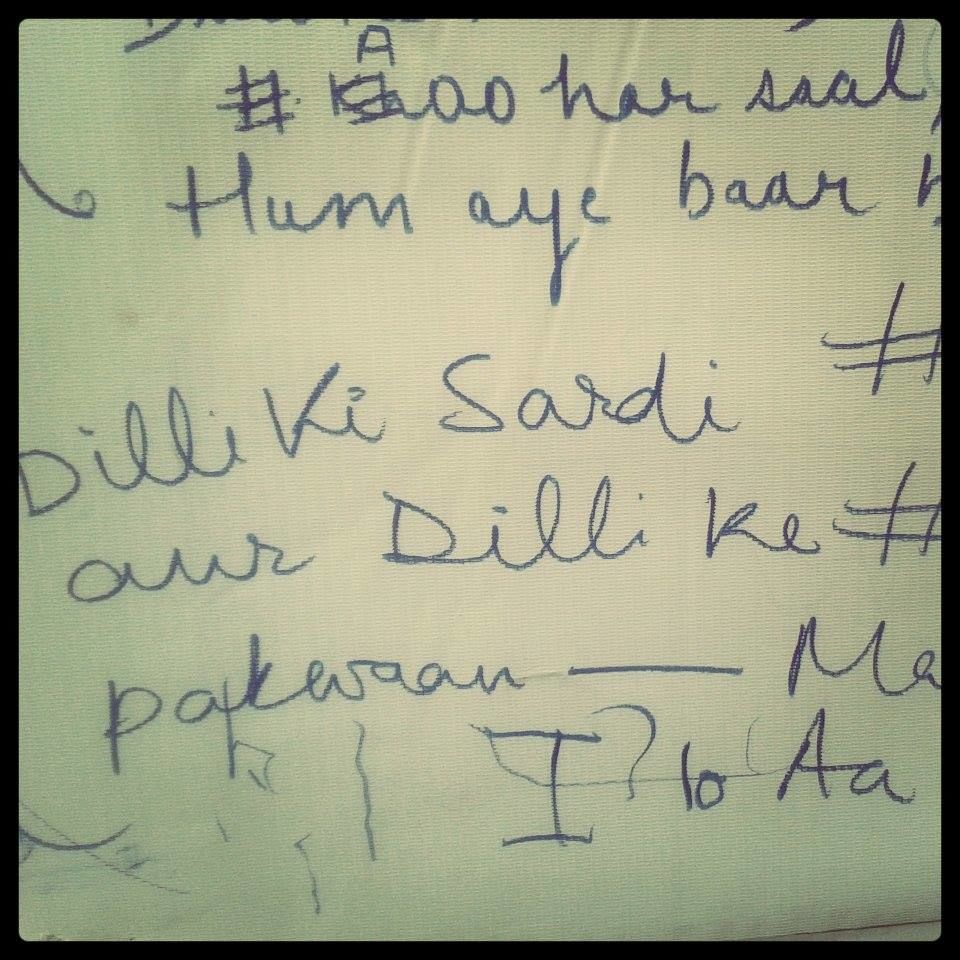 # Aoo har saal
Hum aye baar
#
Dilli Ki Sardi
aur Dilli ke #
pakwaan — Ma
I to Aa